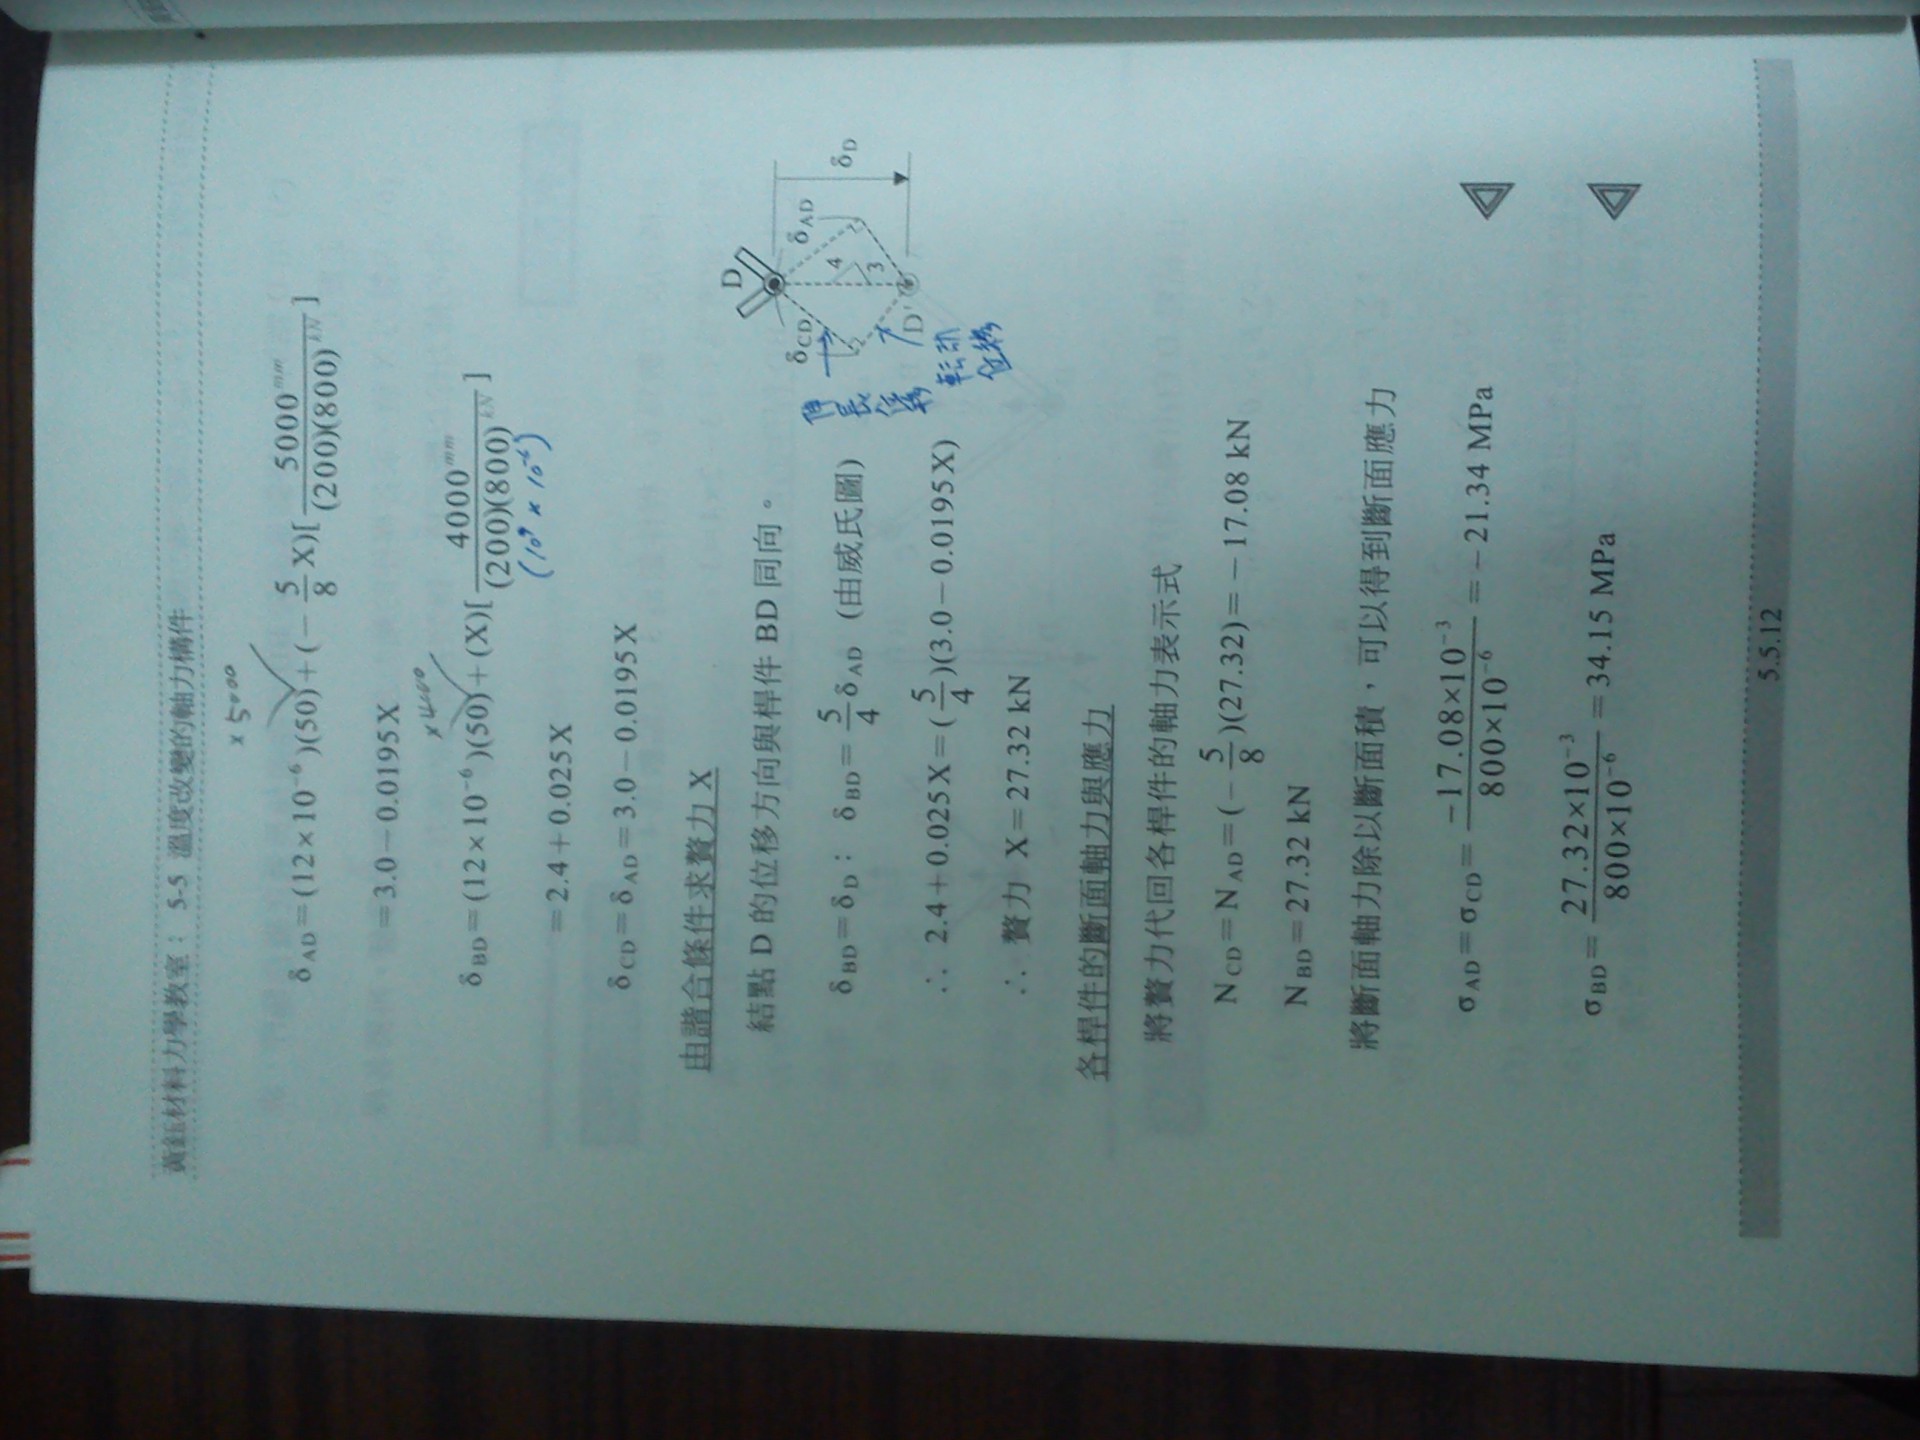 黃鈺材料力學教室：　5-5 溫度改變的軸力構件
×5000
δAD＝(12×10⁻⁶)(50)＋(－5/8 X)[5000mm/(200)(800)kN]
＝3.0－0.0195X
×4000
δBD＝(12×10⁻⁶)(50)＋(X)[4000mm/(200)(800)kN]
(10⁹ × 10⁻⁶)
＝2.4＋0.025X
δCD＝δAD＝3.0－0.0195X
由諧合條件求贅力 X
結點 D 的位移方向與桿件 BD 同向。
D
δCD
δAD
δD
4
3
D'
伸長位移
転角位移
δBD＝δD：　δBD＝5/4 δAD　(由威氏圖)
∴　2.4＋0.025X＝(5/4)(3.0－0.0195X)
∴　贅力 X＝27.32 kN
各桿件的斷面軸力與應力
將贅力代回各桿件的軸力表示式
NCD＝NAD＝(－5/8)(27.32)＝－17.08 kN
NBD＝27.32 kN
將斷面軸力除以斷面積，可以得到斷面應力
σAD＝σCD＝－17.08×10⁻³/800×10⁻⁶＝－21.34 MPa
σBD＝27.32×10⁻³/800×10⁻⁶＝34.15 MPa
5.5.12